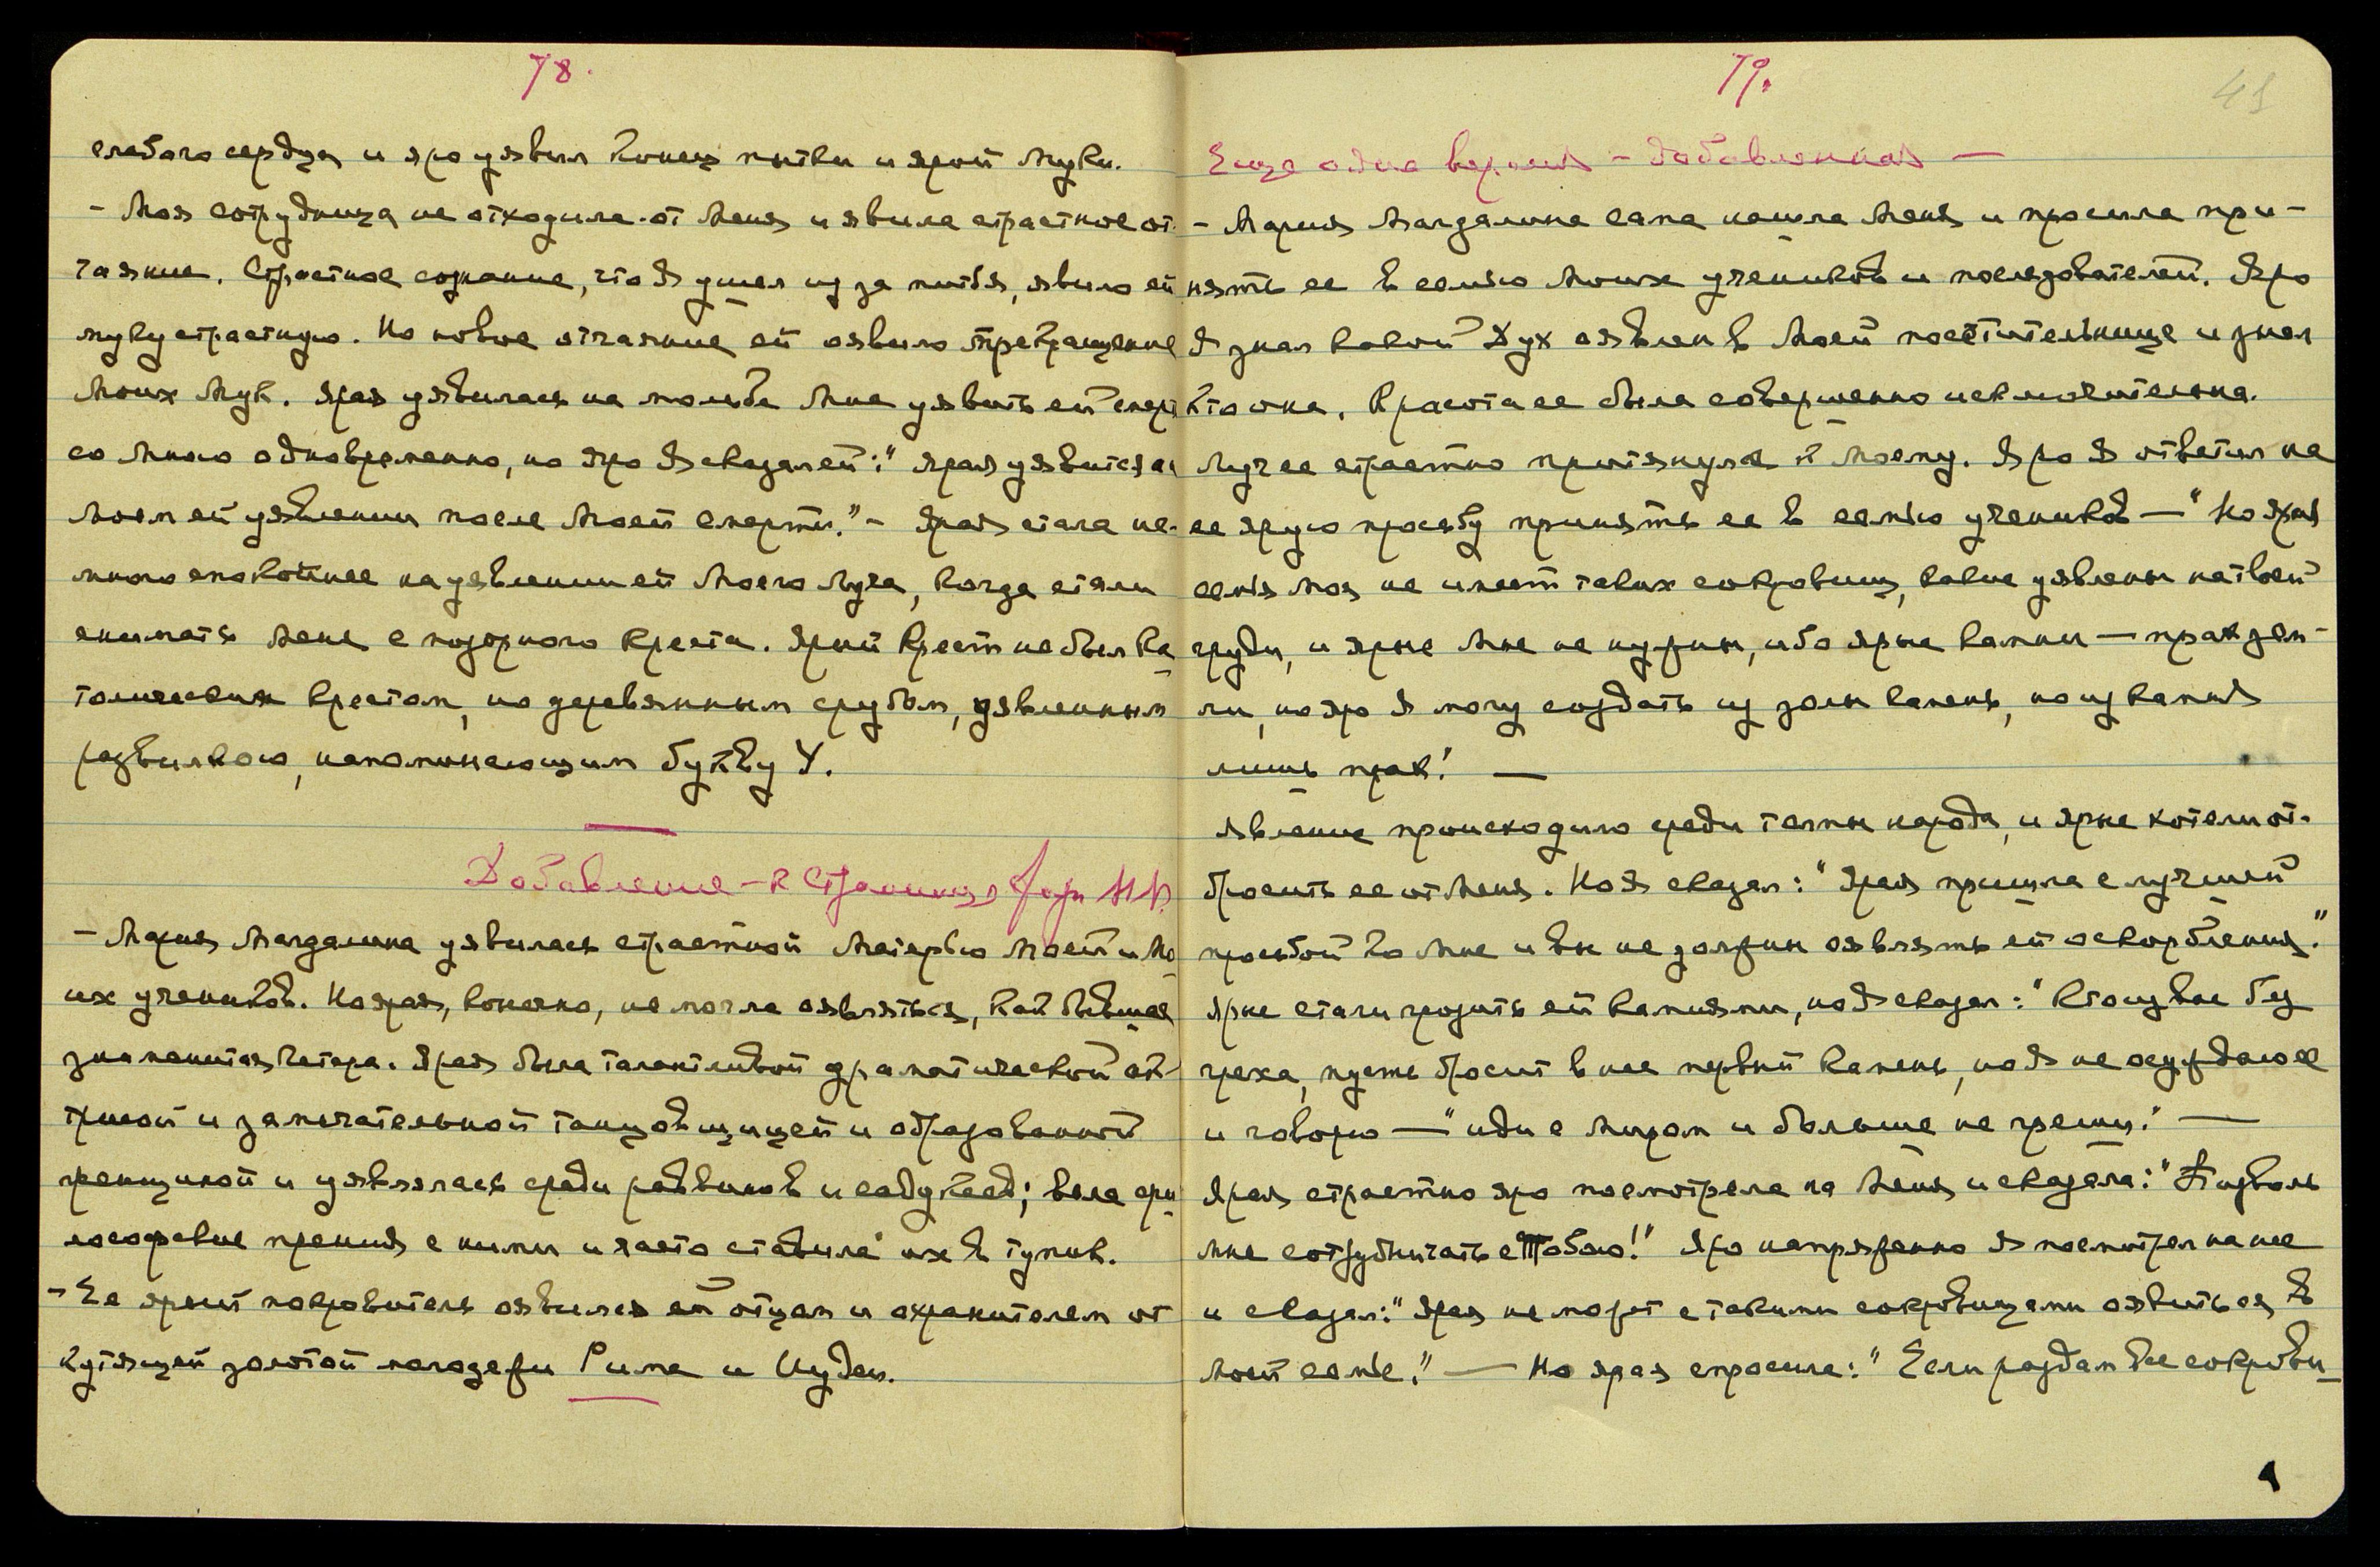 78.
слабого сердца и яро уявил конец пытки и ярой муки.
- Моя сотрудница не отходила от Меня и явила страстное от-
чаяние. Страстное сознание, что Я ушел из за питья, явило ей
муку страстную. Но новое отчаяние ей оявило прекращение
Моих Мук. Ярая уявилась на мольбе Мне уявить ей смерть
со Мною одновременно, но яро Я сказал ей: "Ярая уявится на
Моем ей уявлении после Моей смерти." - Ярая стала не-
много спокойнее на уявлении ей Моего Луча, когда стали
снимать Меня с позорного креста. Ярый крест не был ка-
толическим крестом, но деревянным срубом, уявленным
развилкою, напоминающим букву У.
Добавление - к странице
- Мария Магдалина уявилась страстной Матерью Моей и Мо-
их учеников. Но ярая, конечно, не могла оявляться, как бывшая
знаменитая гетера. Ярая была талантливой драматической ак-
трисой и замечательной танцовщицей и образованной
женщиной и уявлялась среди раввинов и саддукеев; вела фи-
лософские прения с ними и часто ставила их в тупик.
- Ее ярый покровитель оявился ей отцом и охранителем от
кутящей золотой молодежи Рима и Иудеи.
79.
41
Еще одна версия - добавленная -
- Мария Магдалина сама нашла Меня и просила при-
нять ее в семью Моих учеников и последователей. Яро
Я знал какой Дух оявлен в Моей посетительнице и знал
кто она. Красота ее была совершенно исключительна.
Луч ее страстно притянулся к Моему. Яро Я ответил на
ее ярую просьбу принять ее в семью учеников — "Но ярая
семья Моя не имеет таких сокровищ, какие уявлены на твоей
груди, и ярые Мне не нужны, ибо ярые камни — прах зем-
ли, но яро Я могу создать из золы камень, но из камня
лишь прах! —
Явление происходило среди толпы народа, и ярые хотели от-
бросить ее от Меня. Но Я сказал: "Ярая пришла с лучшей
просьбой ко Мне и вы не должны оявлять ей оскорбления."
Ярые стали грозить ей камнями, но Я сказал: "Кто из вас без
греха, пусть бросит в нее первый камень, но Я не осуждаю ее
и говорю — "иди с миром и больше не греши." —
Ярая страстно яро посмотрела на Меня и сказала: "Позволь
мне сотрудничать с Тобою!" Яро напряженно Я посмотрел на нее
и сказал: "Ярая не может с такими сокровищами оявиться в
Моей семье." — Но ярая спросила: "Если раздам все сокрови-